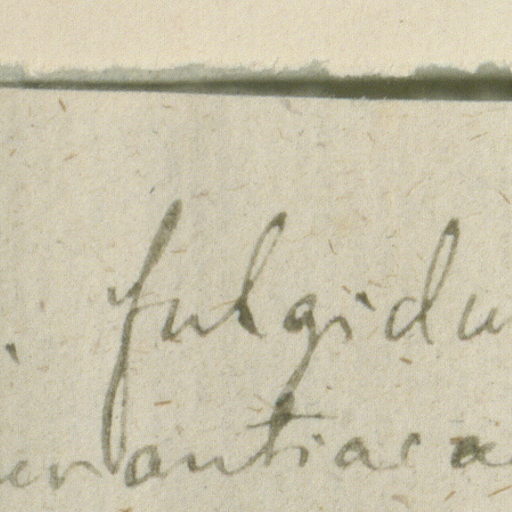 . fulgidu
erantiaca